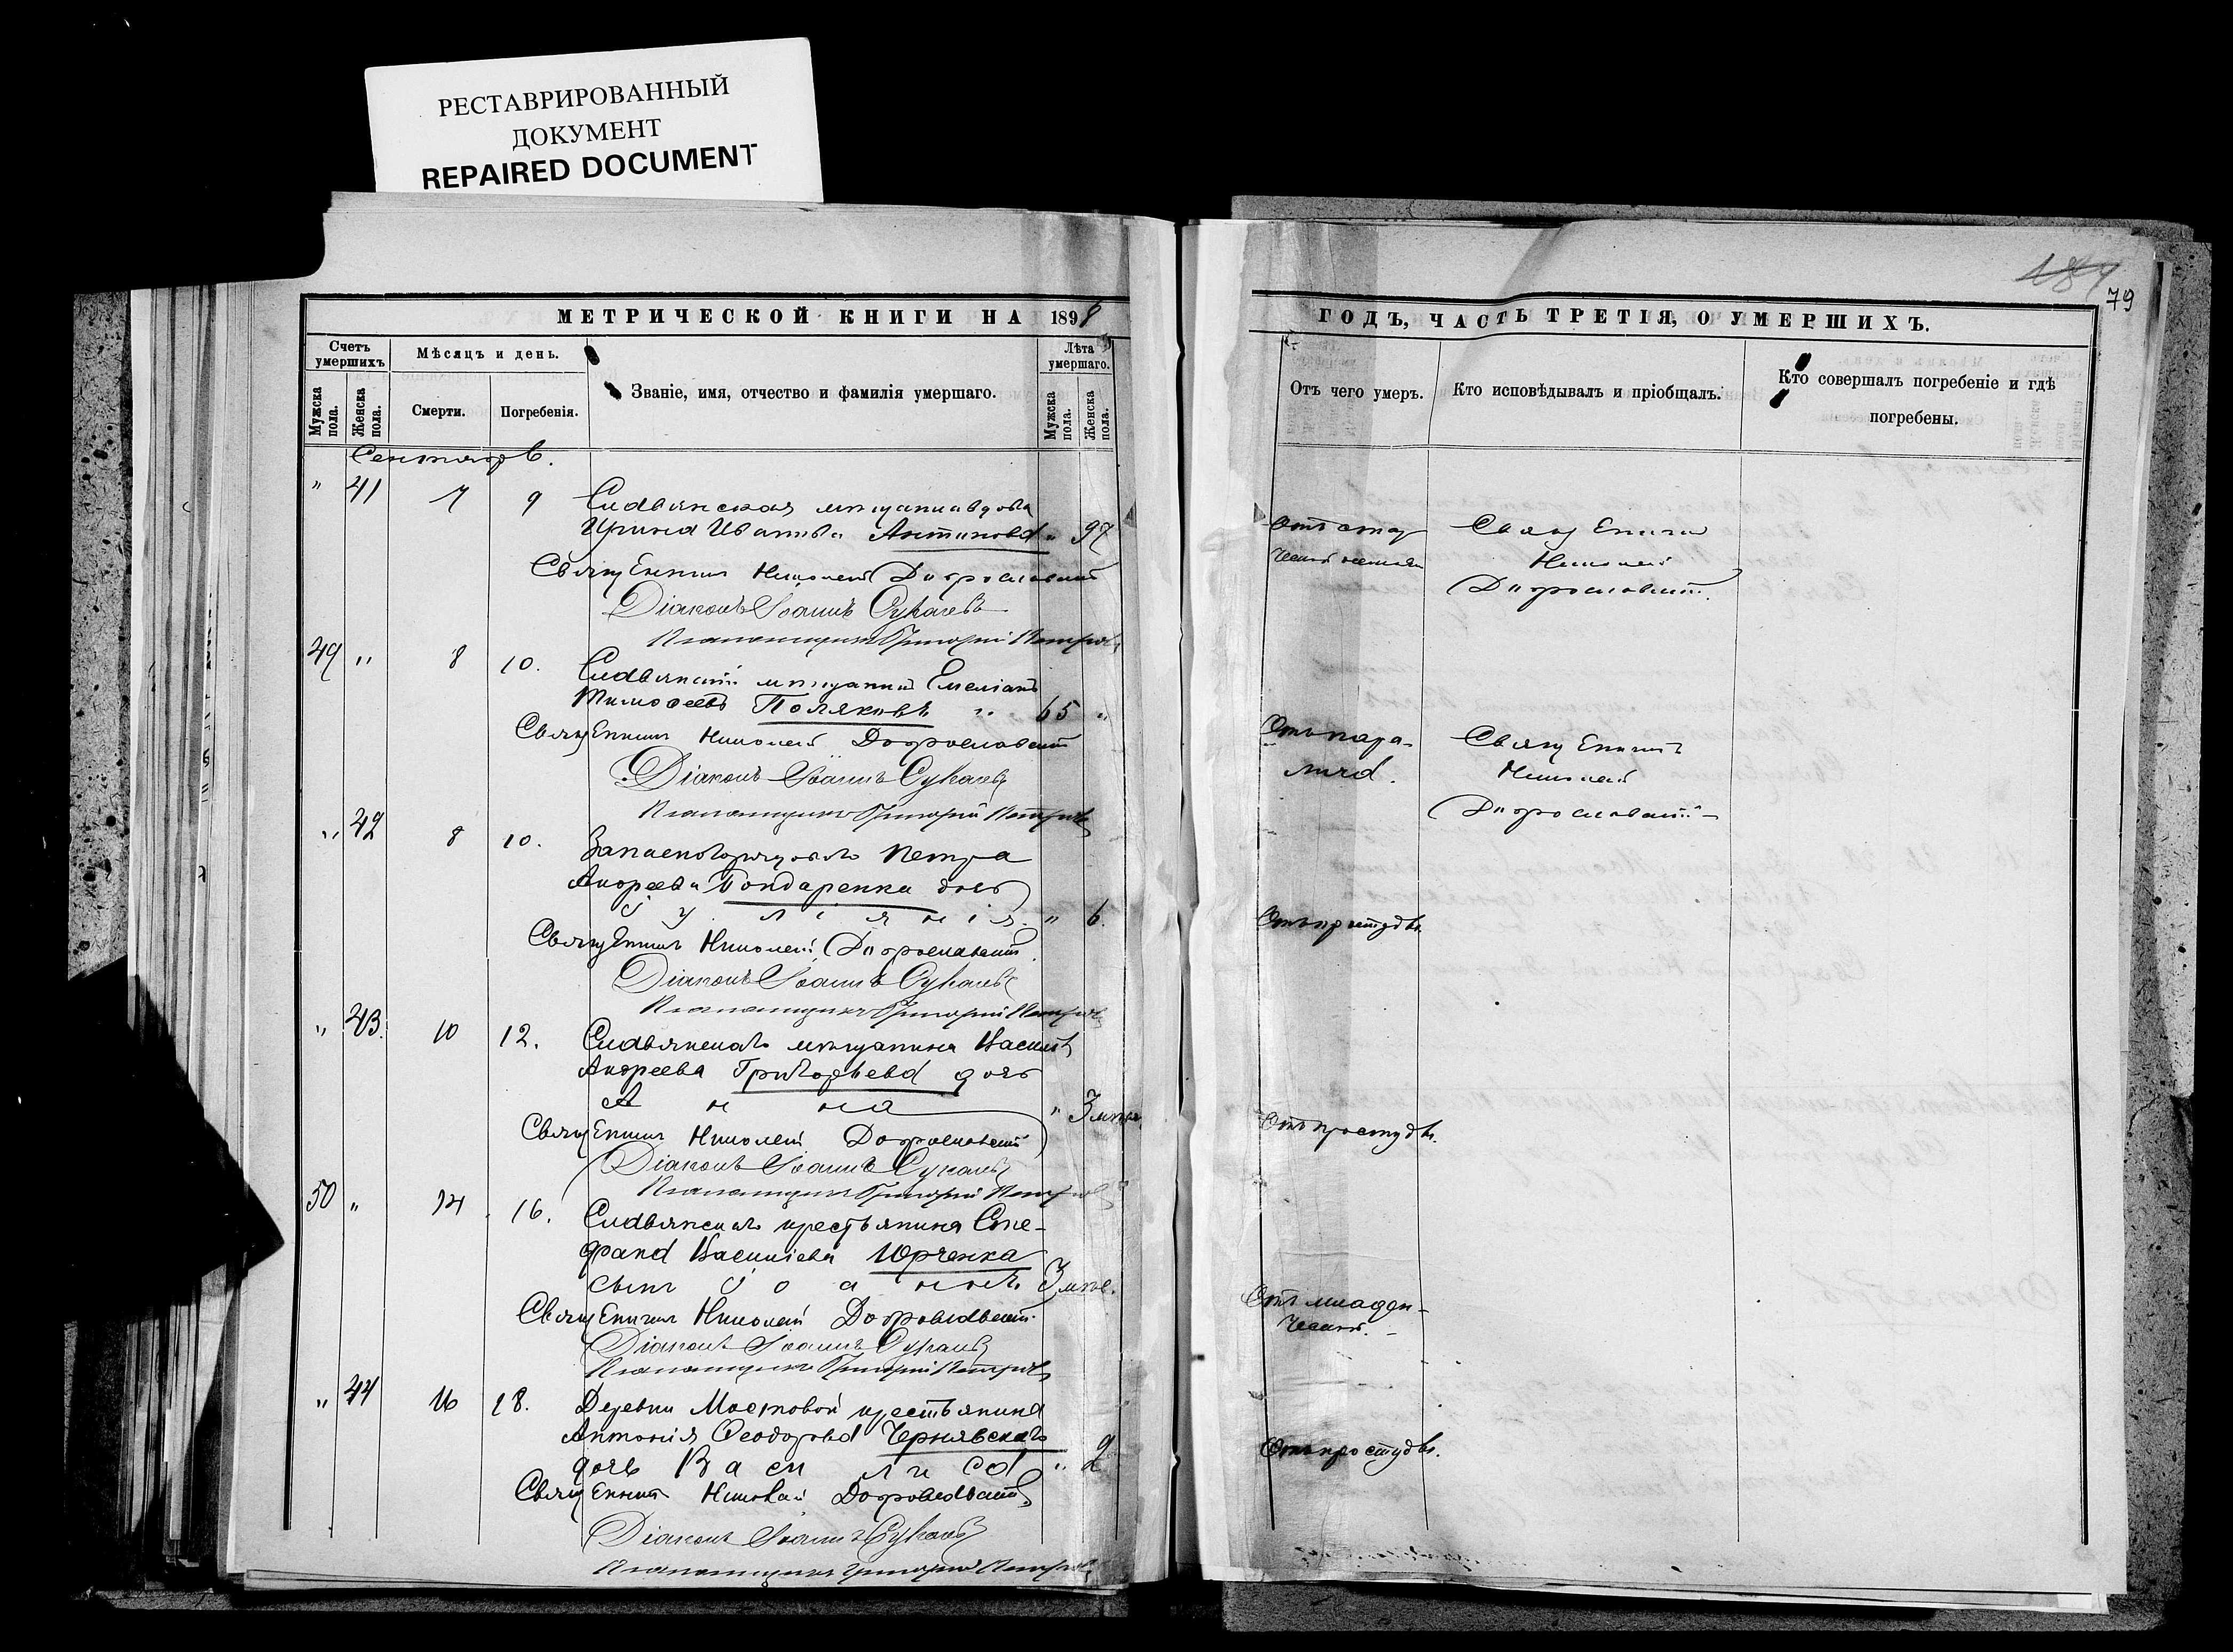 РЕСТАВРИРОВАННЫЙ
ДОКУМЕНТ
REPAIRED DOCUMENT
МЕТРИЧЕСКОЙ КНИГИ НА 1898
Счетъ умершихъ
Мужска пола.
Женска пола.
Мѣсяцъ и день.
Смерти.
Погребенія.
Званіе, имя, отчество и фамилія умершаго.
Лѣта умершаго.
Мужска пола.
Женска пола.
Сентябрь.
" 41 7 9 мѣщанка вдова
Ирина Иванова Антипова " 97
Священникъ Николай Доброславскій
Діаконъ Іоаннъ Сукачевъ
Псаломщикъ Григорій Петровъ
49 " 8 10. мѣщанинъ Емеліанъ
Тимофеевъ Поляковъ 65 "
Священникъ Николай Доброславскій
Діаконъ Іоаннъ Сукачевъ
Псаломщикъ Григорій Петровъ
" 42 8 10. Запаснаго рядоваго Петра
Андреева Бондаренка дочь
Іуліянія " 6.
Священникъ Николай Доброславскій
Діаконъ Іоаннъ Сукачевъ
Псаломщикъ Григорій Петровъ
" 43. 10 12. мѣщанина Василія
Андреева Григорьева дочь
Анна " 3 мѣс.
Священникъ Николай Доброславскій
Діаконъ Іоаннъ Сукачевъ
Псаломщикъ Григорій Петровъ
50 " 14 16. крестьянина Сте-
фана Василіева Юрченка
сынъ Іоаннъ 3 мѣс.
Священникъ Николай Доброславскій
Діаконъ Іоаннъ Сукачевъ
Псаломщикъ Григорій Петровъ
" 44 16 18. Деревни Мостовой крестьянина
Антонія Феодорова Чернявскаго
дочь Василиса " 2
Священникъ Николай Доброславскій
Діаконъ Іоаннъ Сукачевъ
Псаломщикъ Григорій Петровъ
184
79
ГОДЪ, ЧАСТЬ ТРЕТІЯ, О УМЕРШИХЪ.
Отъ чего умеръ.
Кто исповѣдывалъ и пріобщалъ.
Кто совершалъ погребеніе и гдѣ погребены.
Священникъ
Николай
Доброславскій.
Отъ пара-
лича.
Священникъ
Николай
Доброславскій
Отъ простуды.
Отъ простуды.
Отъ младен-
Отъ простуды.